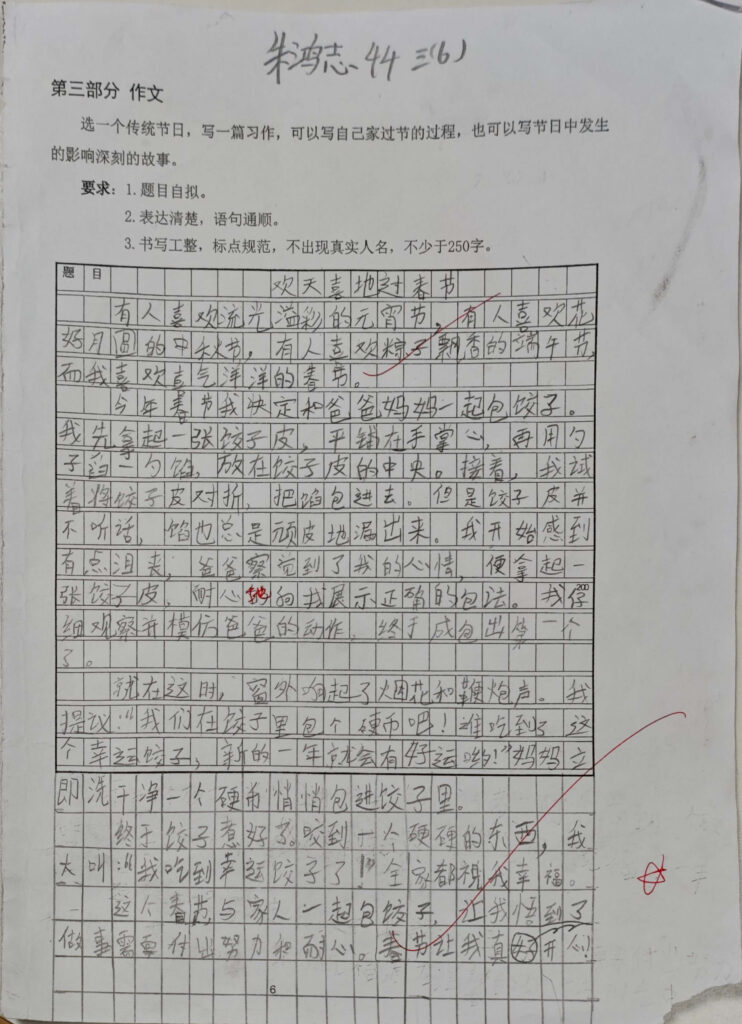 朱鸿志 44 三(6)
第三部分 作文
选一个传统节日，写一篇习作，可以写自己家过节的过程，也可以写节日中发生
的影响深刻的故事。
要求：1. 题目自拟。
2. 表达清楚，语句通顺。
3. 书写工整，标点规范，不出现真实人名，不少于250字。
题 目
欢天喜地过春节
有人喜欢流光溢彩的元宵节，有人喜欢花
好月圆的中秋节，有人喜欢粽子飘香的端午节，
而我喜欢喜气洋洋的春节。
今年春节我决定和爸爸妈妈一起包饺子。
我先拿起一张饺子皮，平铺在手掌心，再用勺
子舀一勺馅，放在饺子皮的中央。接着，我试
着将饺子皮对折，把馅包进去。但是饺子皮并
不听话，馅也总是顽皮地漏出来。我开始感到
有点沮丧，爸爸察觉到了我的心情，便拿起一
张饺子皮，耐心地向我展示正确的包法。我仔
200
细观察并模仿爸爸的动作，终于成包出第一个
了。
就在这时，窗外响起了烟花和鞭炮声。我
提议：“我们在饺子里包个硬币吧！谁吃到了这
个幸运饺子，新的一年就会有好运哟！”妈妈立
即洗干净一个硬币悄悄包进饺子里。
终于饺子煮好了。咬到一个硬硬的东西，我
大叫：“我吃到幸运饺子了！”全家都祝我幸福。
这个春节与家人一起包饺子，让我悟到了
做事需要付出努力和耐心。春节让我真好开心！
6